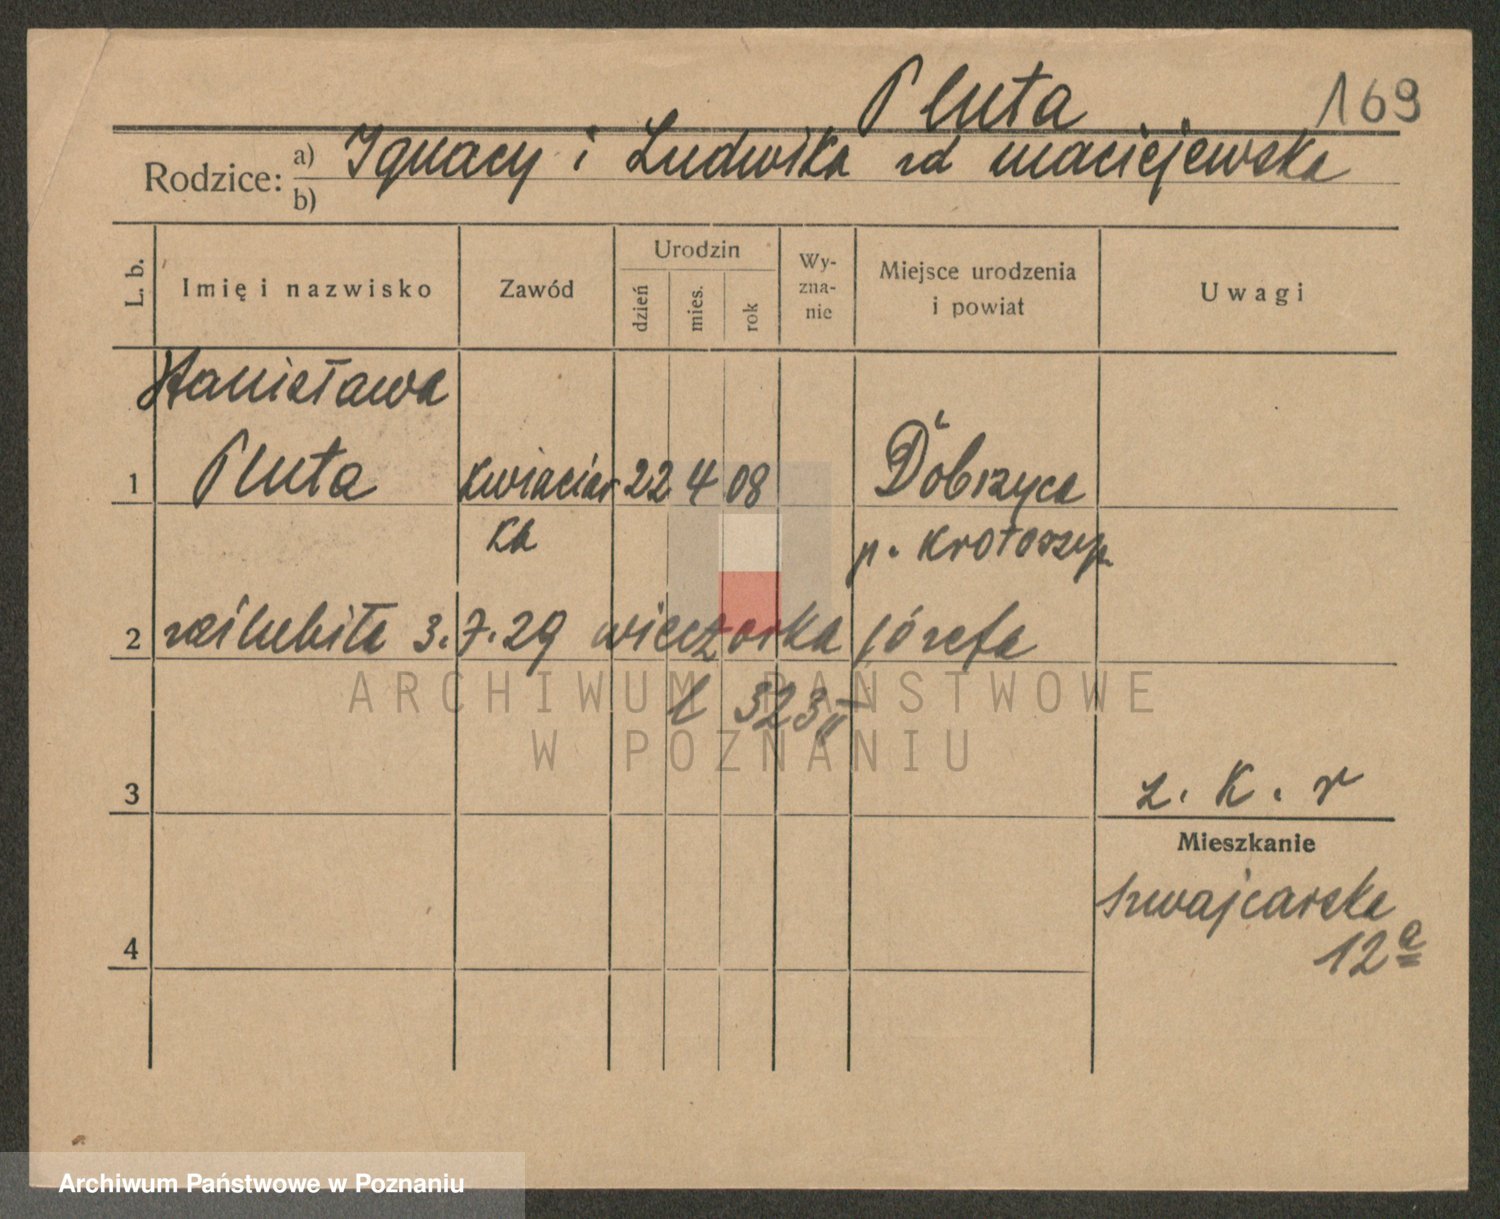 Pluta 169
Rodzice: a) Ignacy i Ludwika zd maciejewska
b)
L. b. Imię i nazwisko Zawód Urodzin dzień mies. rok Wy-zna-nie Miejsce urodzenia i powiat Uwagi
Stanisława
1 Pluta kwiaciar 22 4 08 Dobrzyca
ka p. Krotoszyn
2 zaślubiła 3.7.29 wieczorka józefa
l 323
ARCHIWUM PAŃSTWOWE
W POZNANIU
3 z. K. r
Mieszkanie
szwajcarska
4 12a
Archiwum Państwowe w Poznaniu